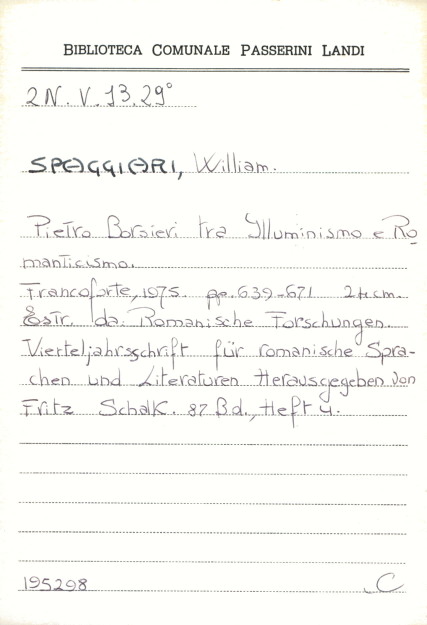 BIBLIOTECA COMUNALE PASSERINI LANDI
2N. V. 13.29°
SPAGGIARI, William.
Pietro Borsieri tra Illuminismo e Ro-
manticismo.
Francoforte, 1975. pp. 639-671 24cm.
Estr. da: Romanische Forschungen.
Vierteljahrsschrift für romanische Spra-
chen und Literaturen Herausgegeben von
Fritz Schalk. 87 Bd., Heft 4.
195298 C